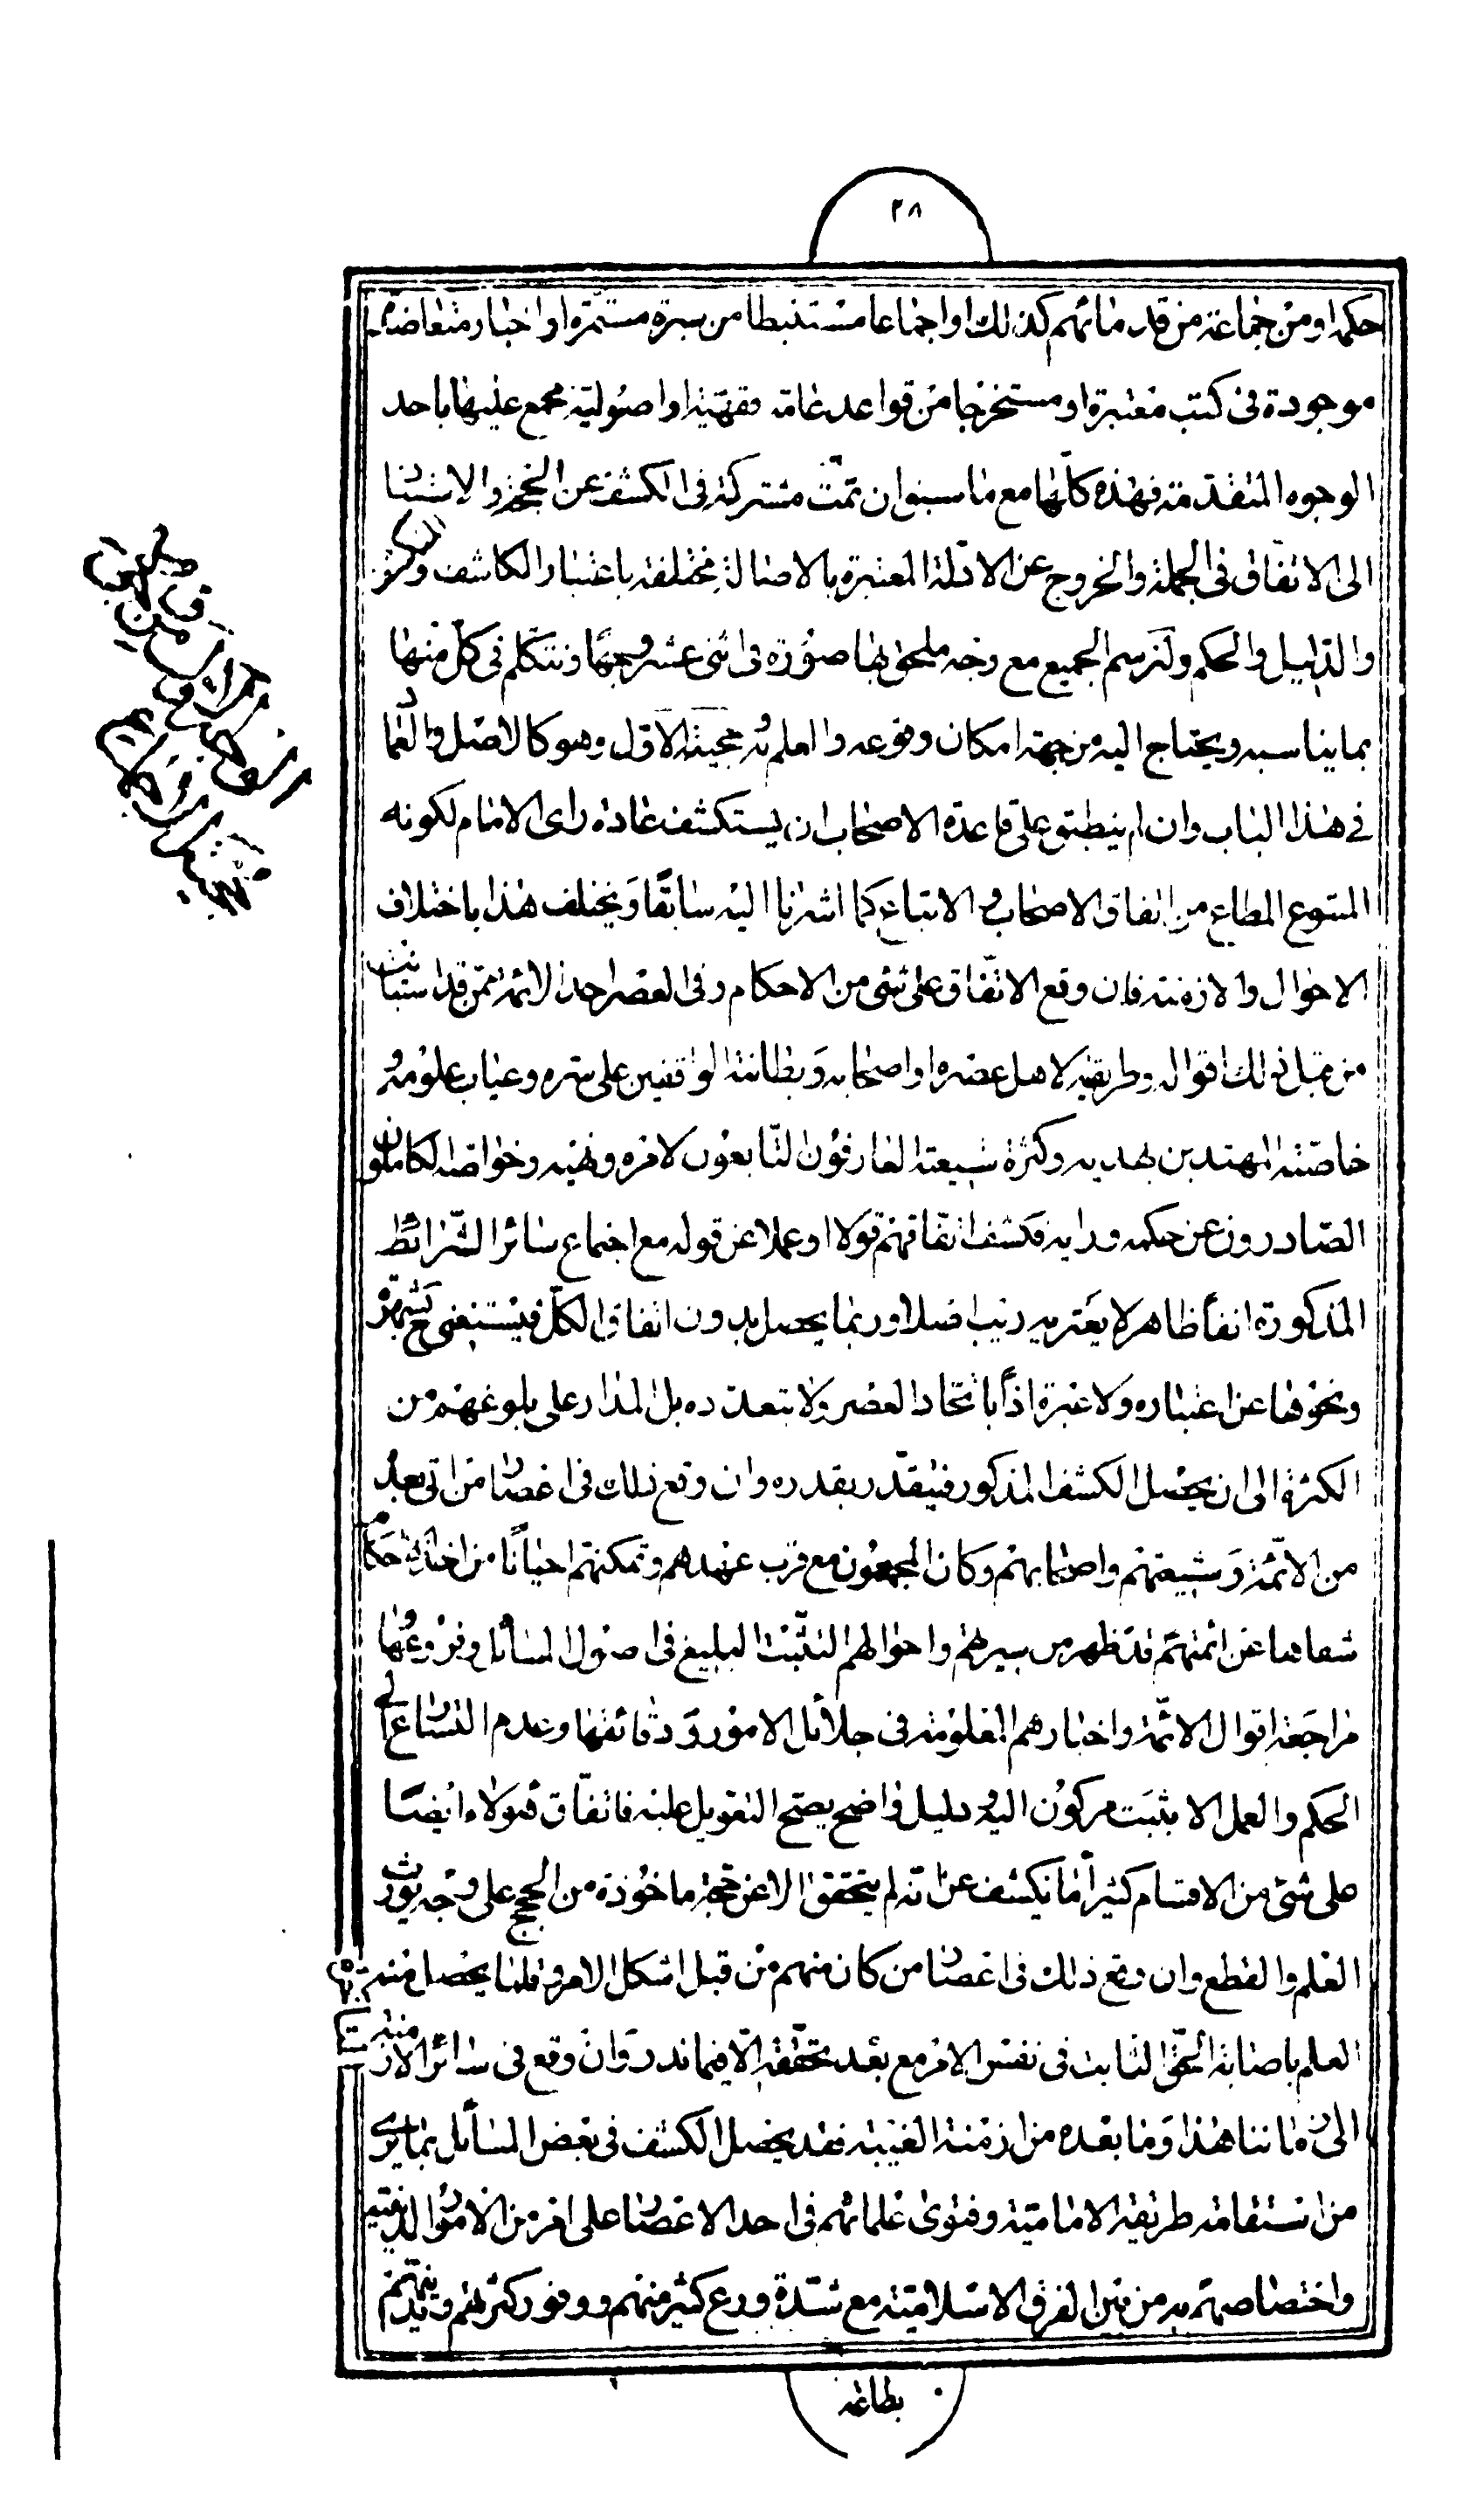 ٢٨
حكمه او من جماعة من قدمائهم كذلك او اجماعا مستنبطا من سيرة مستمرة او اخبار متعاضدة
موجودة فى كتب معتبرة او مستخرجا من قواعد عامة فقهيّة او اصوليّة مجمع عليها باحد
الوجوه المتقدّمة فهذه كلّها مع ما سبق وان تمّت مشتركة فى الكشف عن الحجّة والاستناد
الى الاتفاق فى الجملة والخروج عن الادلّة المعتبرة بالاصالة مختلفة باعتبار الكاشف والمنكشف
والدّليل والحكم ولنرسم الجميع مع وجه ملحق بها صورة فى اثنى عشر وجهًا ونتكلّم فى كلّ منها
بما يناسبه ويحتاج اليه من جهة امكان وقوعه والعلم به وحجيّته الاوّل وهو كالاصل والعماد
فى هذا الباب وان لم ينطبق على قاعدة الاصحاب ان يستكشف عادة راى الامام لكونه
المتبوع المطاع من اتفاق الاصحاب والاتباع كما اشرنا اليه سابقًا ويختلف هذا باختلاف
الاحوال والازمنة فان وقع الاتّفاق على شئ من الاحكام وفى العصر احد الائمّة ممّن قد استبانت
من قبل ذلك اقواله وطريقته لاهل عصره او اصحابه وبطانته الواقفين على سرّه وعياب علومه و
خاصّته المهتدين بهديه وكثرة شيعته العارفون التّابعون لامره ونهيه وخواصّه الكاملون
الصّادرون عن حكمه ورايه فكشف اتّفاقهم قولا او عملا عن قوله مع اجتماع سائر الشّرائط
المذكورة انفًا ظاهر لا يعتريه ريب اصلا وربما يحصل بدون اتفاق الكلّ فيستغنى ح بشهرة
ونحوها عن اعتباره ولا عبرة اذًا باتّحاد العصر ولا بتعدّده بل المدار على بلوغهم من
الكثرة الى ان يحصل الكشف المذكور فيتقدّر بقدره وان وقع ذلك فى اعصار من اتى بعد
من الائمّة وشيعتهم واصحابهم وكان المجمعون مع قرب عهدهم وتمكنهم احيانًا من اخذ الاحكام
شفاها عن ائمتهم قد ظهر من سيرهم واحوالهم التثبّت البليغ فى اصول المسائل وفروعها و
مراجعة اقوال الائمّة واخبارهم المعلومة فى جلائل الامور ودقائقها وعدم التسارع الى
الحكم والعمل الا بثبت مركون اليه ودليل واضح يصحّ التعويل عليه فاتفّاق هؤلاء ايضًا
على شئ من الاقسام كثيرًا ما يكشف عن انّه لم يتحقق الا عن حجّة ماخوذة من الحجج على وجه يورث
العلم والقطع وان وقع ذلك فى اعصار من كان منهم من قبل اشكل الامر وقلما يحصل منه
العلم باصابة الحقّ الثابت فى نفس الامر مع بعد تحقّقه الّا فيما ندر وان وقع فى سائر الازمنة
الى زماننا هذا وما بعده من ازمنة الغيبة فقد يحصل الكشف فى بعض المسائل بما يرى
من استقامة طريقة الاماميّة وفتوى علمائهم فى احد الاعصار على امر من الامور الدينيّة
واختصاصهم به من بين الفرق الاسلاميّة مع شدّة ورع كثير منهم ووفور كثرتهم وتديّنهم
بطاعة